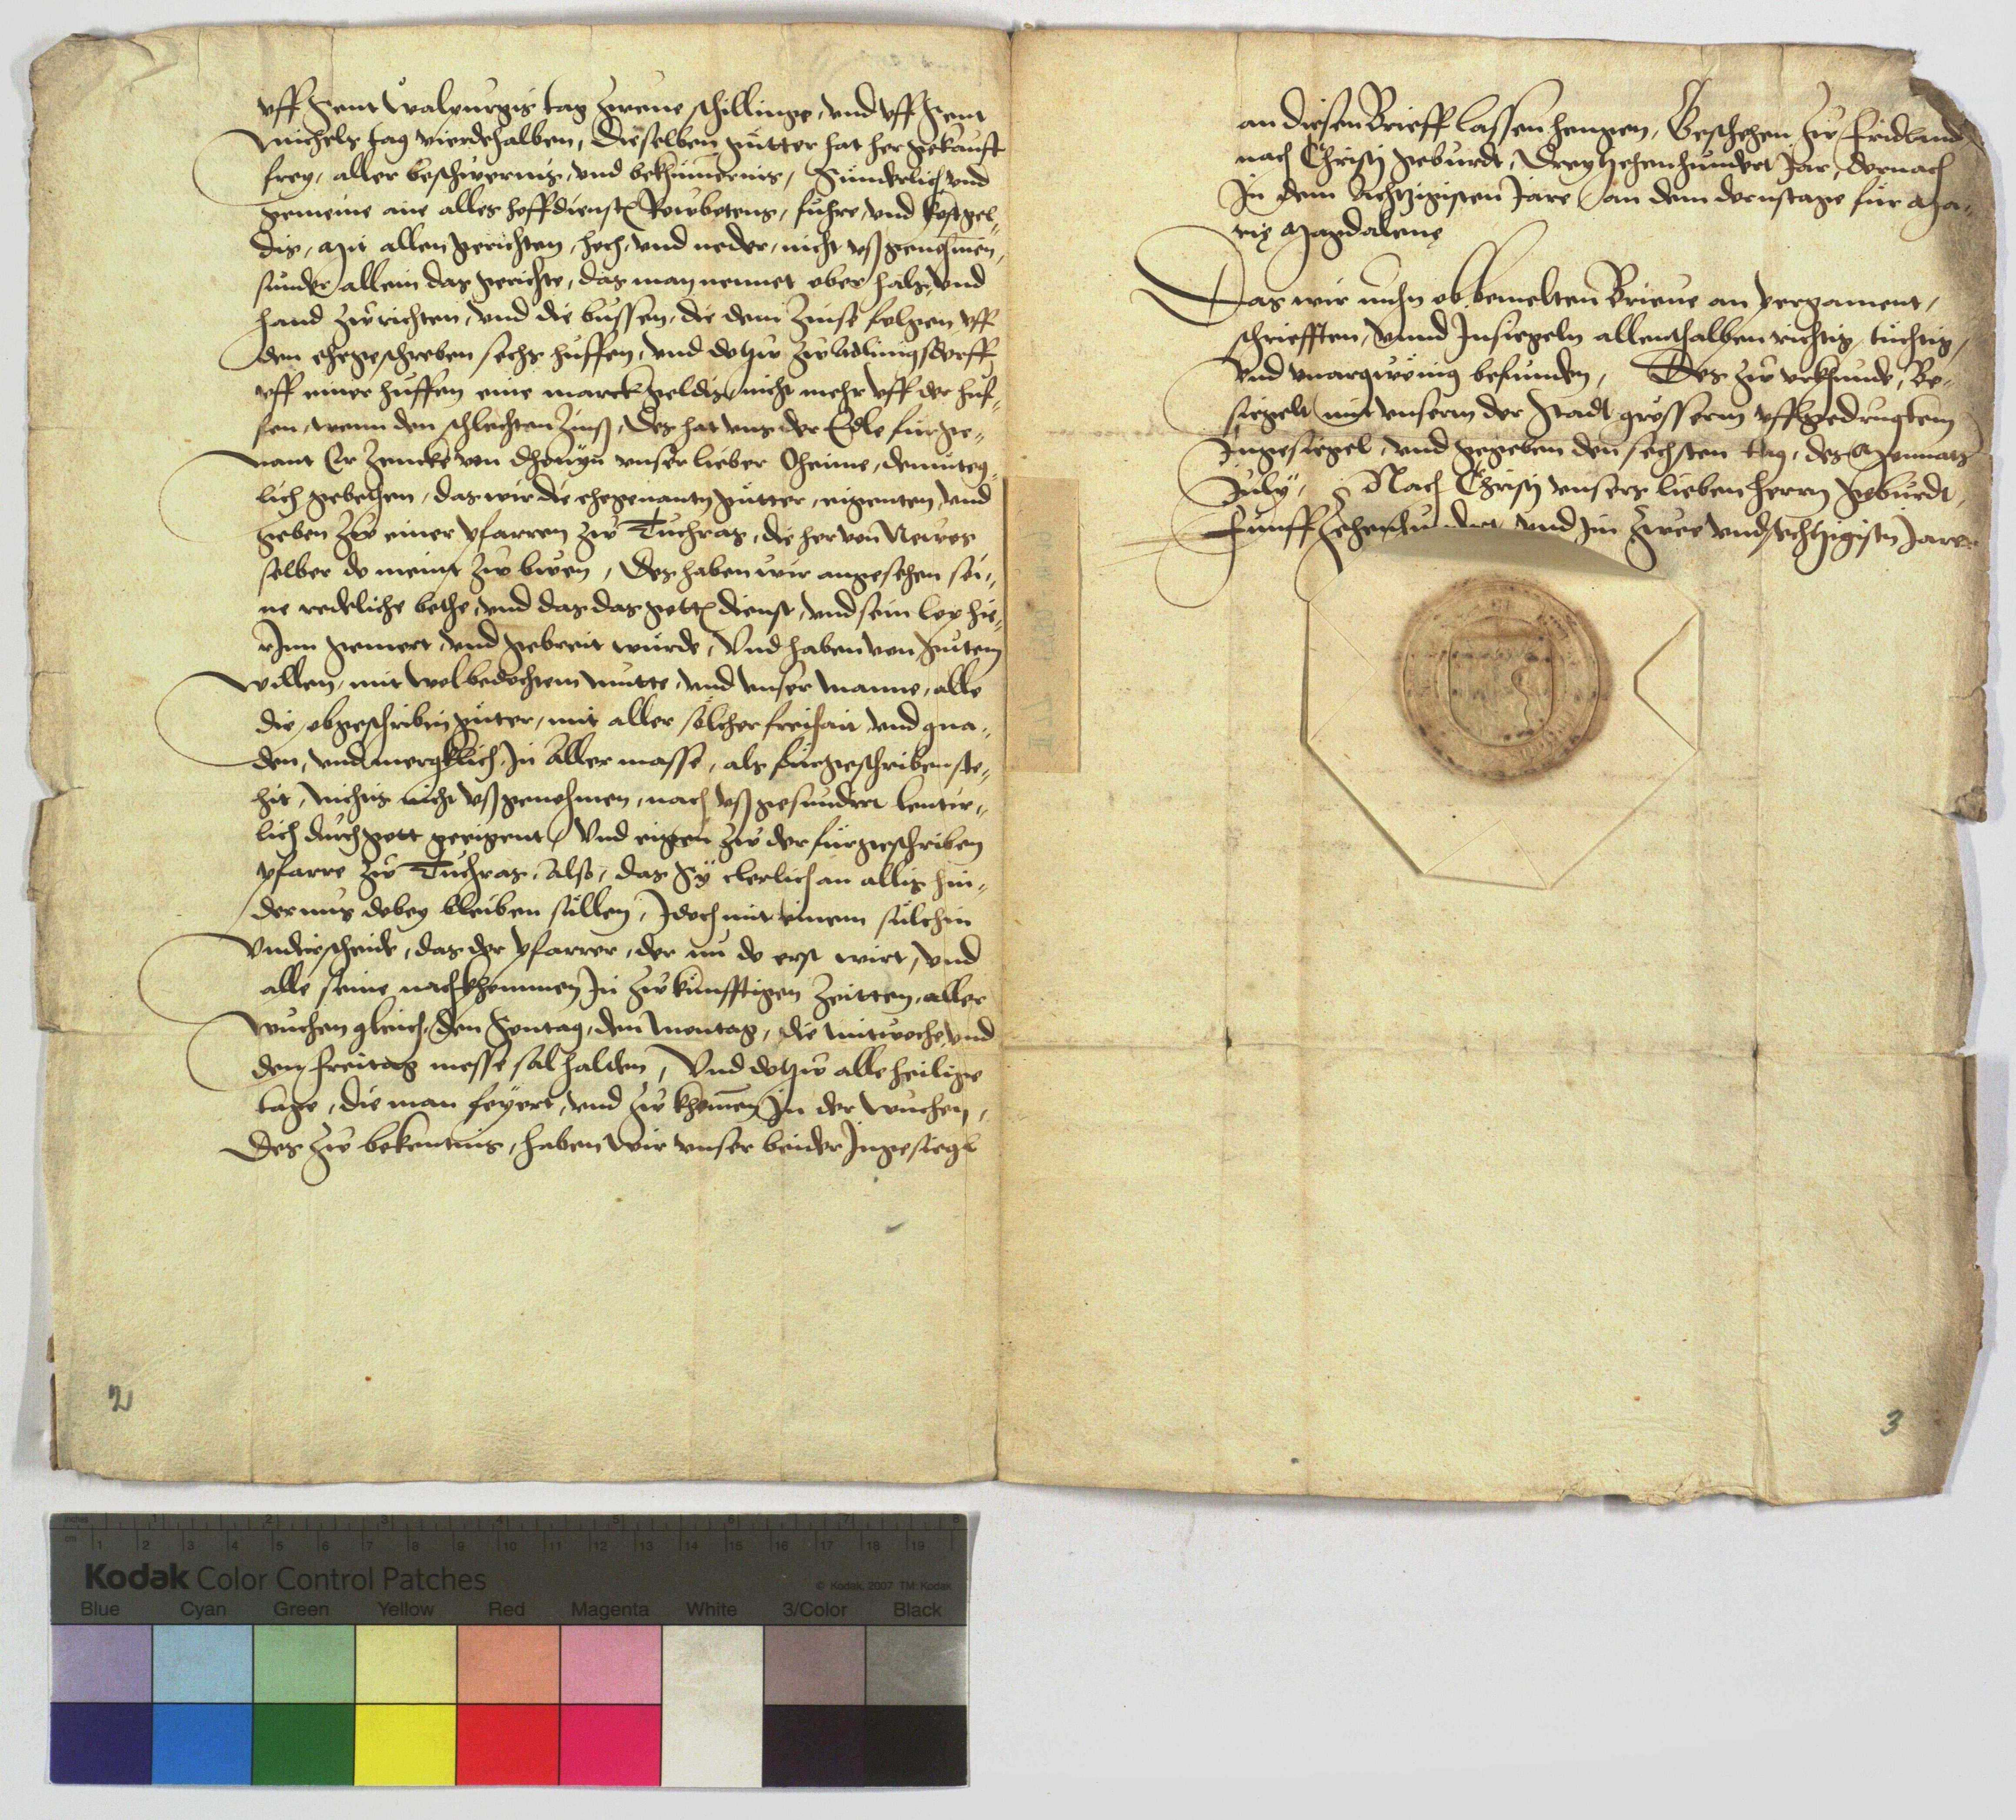 uff Sent Walpurgis tag zwene schillinge, und uff Sent
Michels tag vierdehalben, Dieselben gutter hat her gekauft
frey, aller beschwernis, und bekhumernis, Sunderlich und
gemeine ane alles hoffdienst, fuhre, und
dis, Mit allen gerichten, hoch, und neder, nicht ußgenohmen,
sunder allein das gerichte, das man nennet ober hals, und
hand zu richten, und die bussen, die dem Zinse folgen uff
den ehegeschreben sechs huffen, und dotzu zu
uff einer huffen eine marck geldis nicht mehr uff der huf-
fen, wenn den schlechten Zinß, Des hat uns der Edle fürge-
nant Er von unser lieber Oheime, demuteg-
lich gebethen, das wir die ehegenanten gutter, eigenten, und
geben zu einer pfarren zu Tuchras, die her von Newes
selber do meint zu bwen, Des haben wir angesehen sei-
ne redeliche bethe, und das das gotts dienst, und sein lop hie-
rinn gemert, und gebreit wurde, Und haben von gutem
willen, mit wolbedochtem mutte, und unser manne, alle
die obgeschribin guter, mit aller solcher freiheit und gna-
den, und mergklich, In aller masse, als fürgeschriben ste-
hit, nichtis nicht ußgenohmen, nach ußgesundert lauter-
lich durch gott geeigent, Und eigen zu der fürgeschriben
pfarre zu Tuchras, Also, das Sy clerlich an allis hin-
dernus dobey bleiben sullen, Idoch mit einem sulchin
Underscheide, das der pfarrer, der nu do erst wirt, und
alle seine nachkhommen In zukunfftigen Zeitten, aller
wuchen gleich, den Sontag, den Montag, die mitwoche und
den freitag messe sal halden, Und dotzu alle heilige
tage, die man feyert, und zu khomen In der wuchen,
Des zu bekentnis, haben wir unser beider Ingesiegl
2
an diesen Brieff lassen hengen, Geschehen zu Fridland
nach Christi geburdt, Dreytzehenhundert Jar, dornach
In dem Achtzigisten Jare an dem dornstage für Ma-
rie Magdalene
Das wir nuhn obbemelten Brieve an pergament,
schriefften, unnd Insiegeln allenthalben richtig, tuchtig,
Und unargwönig befunden, Des zu urkhunde, Be-
siegelt mit unserm der Stadt grösserm uffgedrugktem
Ingesiegel, und gegeben den sechsten tag, des Monnats
July, Nach Christi unsers lieben Herrn geburdt,
Funffzehenhundert und Im Zwee und Jare
3
Kodak Color Control Patches
© Kodak, 2007 TM: Kodak
Blue Cyan Green Yellow Red Magenta White 3/Color Black